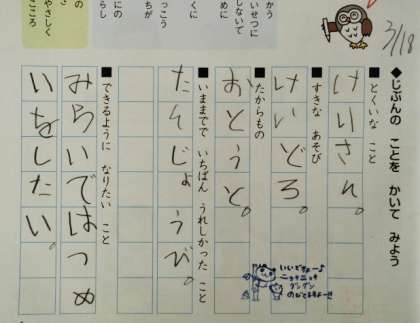 かう
いせつに
しないで
めに
っこう
くに
ちが
にの
らし
の
やさしく
こころ
3/18
◆じぶんの ことを かいて みよう
■とくいな こと
けいさん。
■すきな あそび
けいどろ。
■たからもの
おとうと。
■いままでで いちばん うれしかった こと
たんじょうび。
■できるように なりたい こと
みらいではつめ
いをしたい。
いいですねー♪
ニョキニョキ
グングン
のびてますよー!!